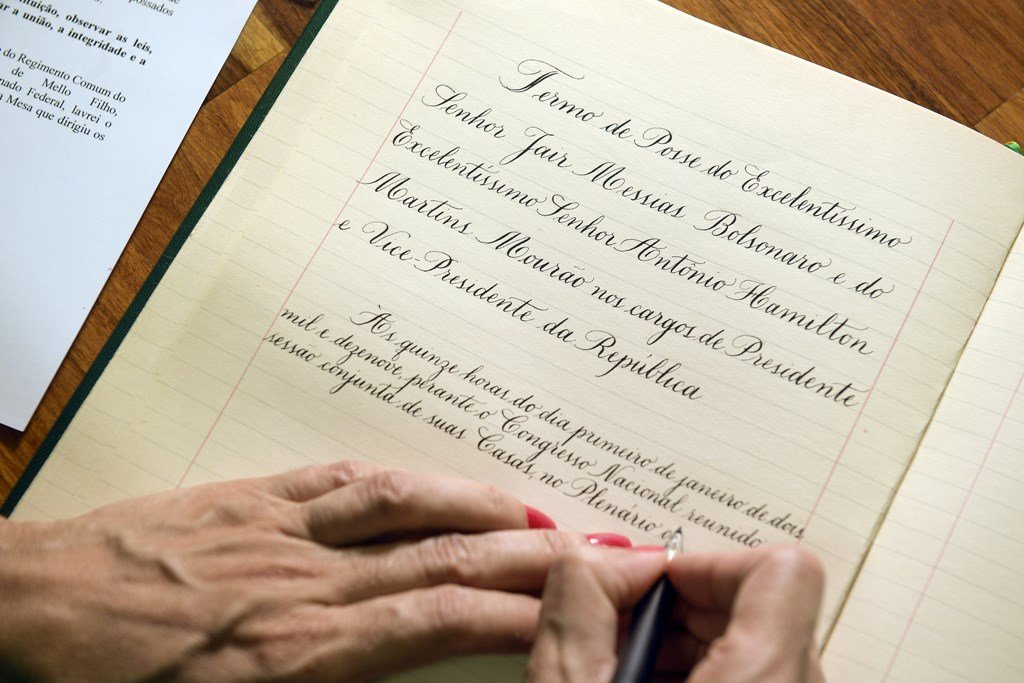 tituição, observar as leis,
ar a união, a integridade e a
do Regimento Comum do
de Mello Filho,
nado Federal, lavrei o
a Mesa que dirigiu os
Termo de Posse do Excelentíssimo
Senhor Jair Messias Bolsonaro e do
Excelentíssimo Senhor Antônio Hamilton
Martins Mourão nos cargos de Presidente
e Vice-Presidente da República
Às quinze horas do dia primeiro de janeiro de dois
mil e dezenove, perante o Congresso Nacional reunido
sessão conjunta de suas Casas, no Plenário d